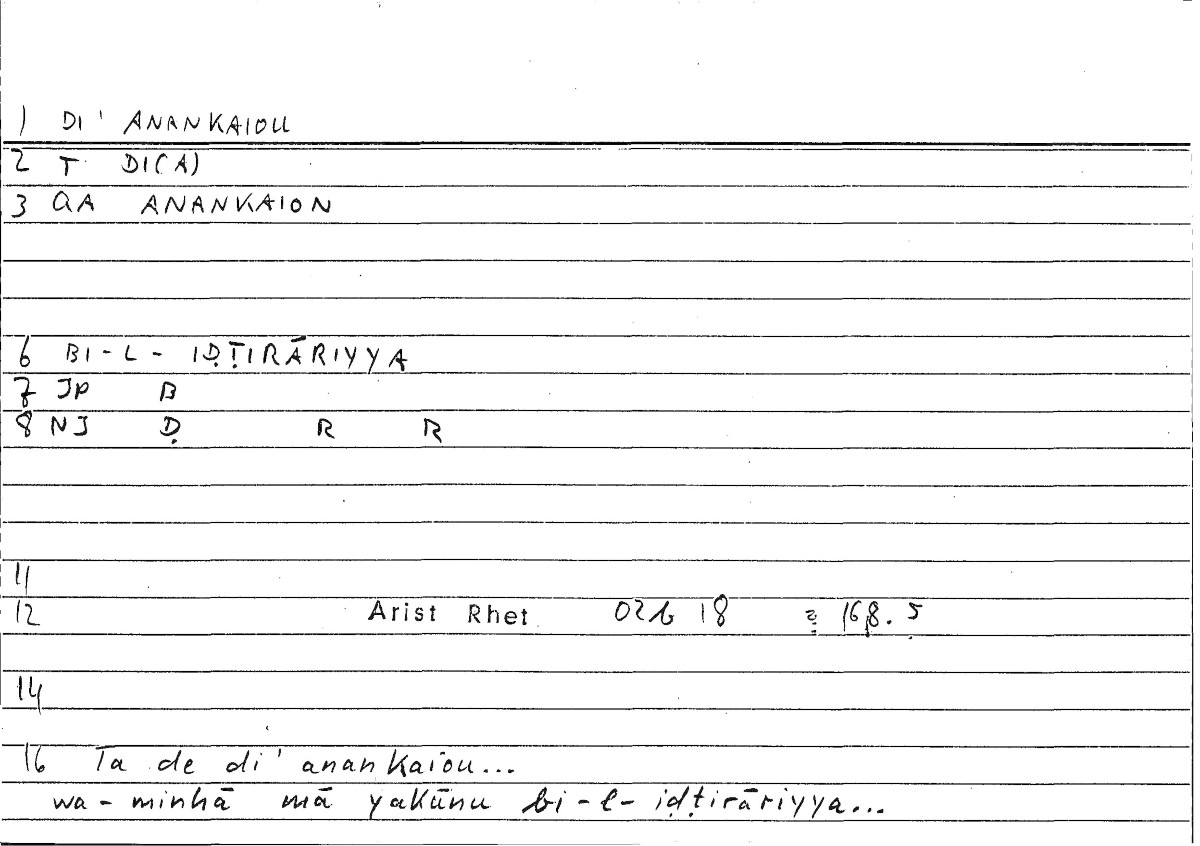 1 DI' ANANKAIOU
2 T DI(A)
3 QA ANANKAION
6 BI-L-IḌṬIRĀRIYYA
7 JP B
8 NJ Ḍ R R
11
12 Arist Rhet 02b 18 = 168.5
14
16 Ta de di' anankaiou...
wa-minhā mā yakūnu bi-l-iḍṭirāriyya...